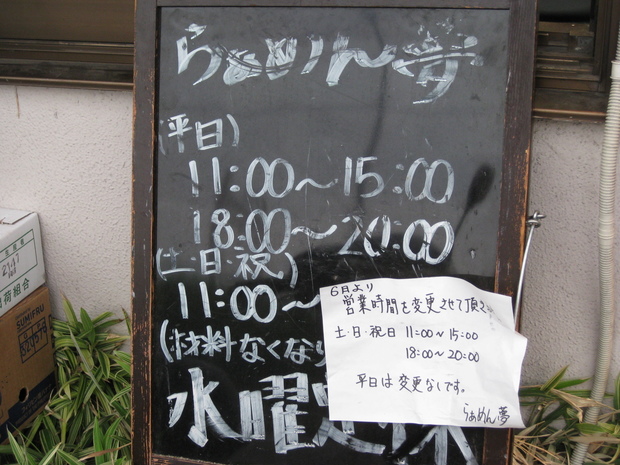 らぁめん 夢
(平日)
11:00～15:00
18:00～20:00
(土・日・祝)
11:00～
(材料なくなり
水曜定休
6月より
営業時間を変更させて頂きま
土・日・祝日 11:00～15:00
18:00～20:00
平日は変更なしです。
らぁめん夢
SUMIFRU
荷組合